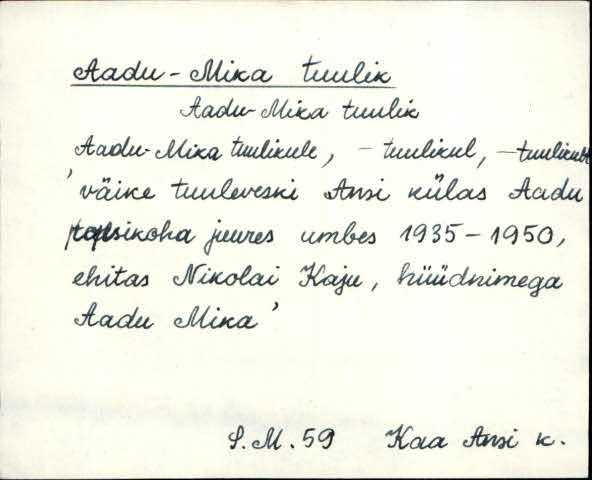 Aadu-Mika tuulik
Aadu-Mika tuulik
Aadu-Mika tuulikule, - tuulikul, - tuulikult
'väike tuuleveski Ansi külas Aadu
popsikoha juures umbes 1935-1950,
ehitas Nikolai Kaju, hüüdnimega
Aadu Mika'
S.M. 59 Kaa Ansi k.